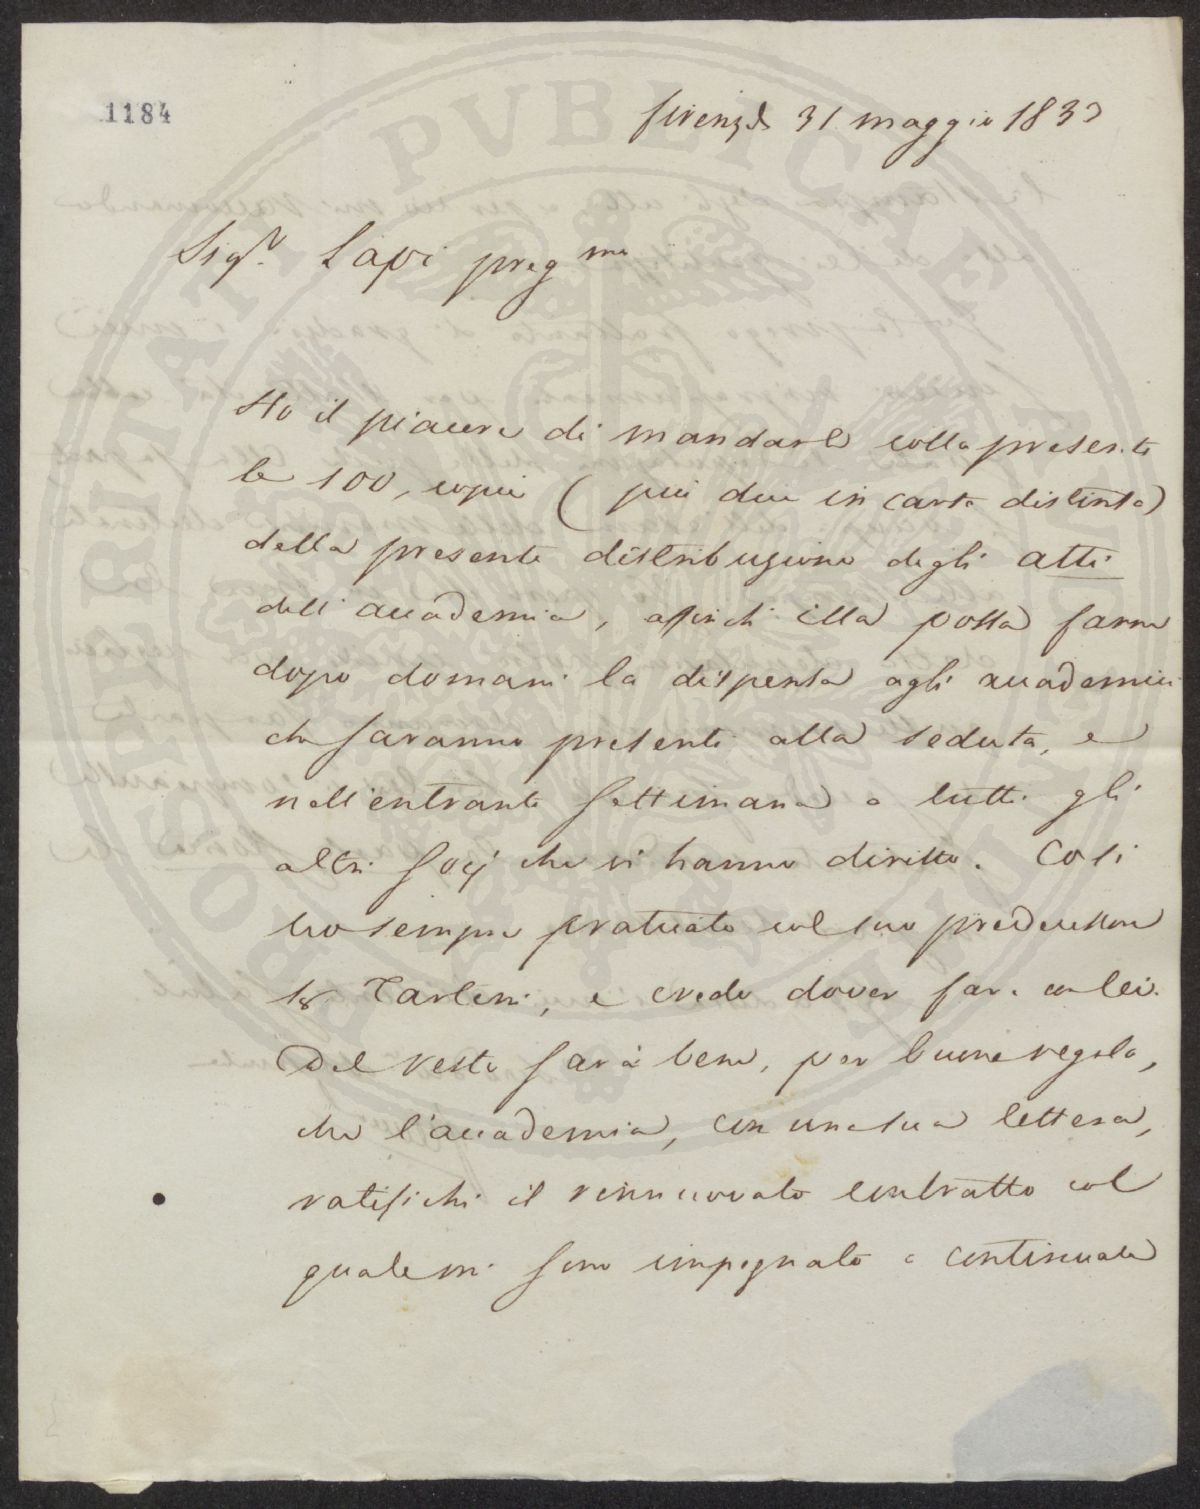 1184
Firenze 31 maggio 1833
Sig.r Lapi preg.mo
Ho il piacere di mandarle colla presente
le 100, copie (più due in carta distinta)
della presente distribuzione degli atti
dell'accademia, affinchè ella possa farne
dopo domani la dispensa agli accademici
che saranno presenti alla seduta, e
nell'entrante settimana a tutti gli
altri socj che vi hanno diritto. Così
ho sempre praticato col suo predecessore
Tartini, e credo dover fare con lei.
Del resto sarà bene, per buona regola,
che l'accademia, con una sua lettera,
ratifichi il rinnuovato contratto col
quale mi sono impegnato a continuare
PROSPERITATI PVBLICAE AVGENDAE